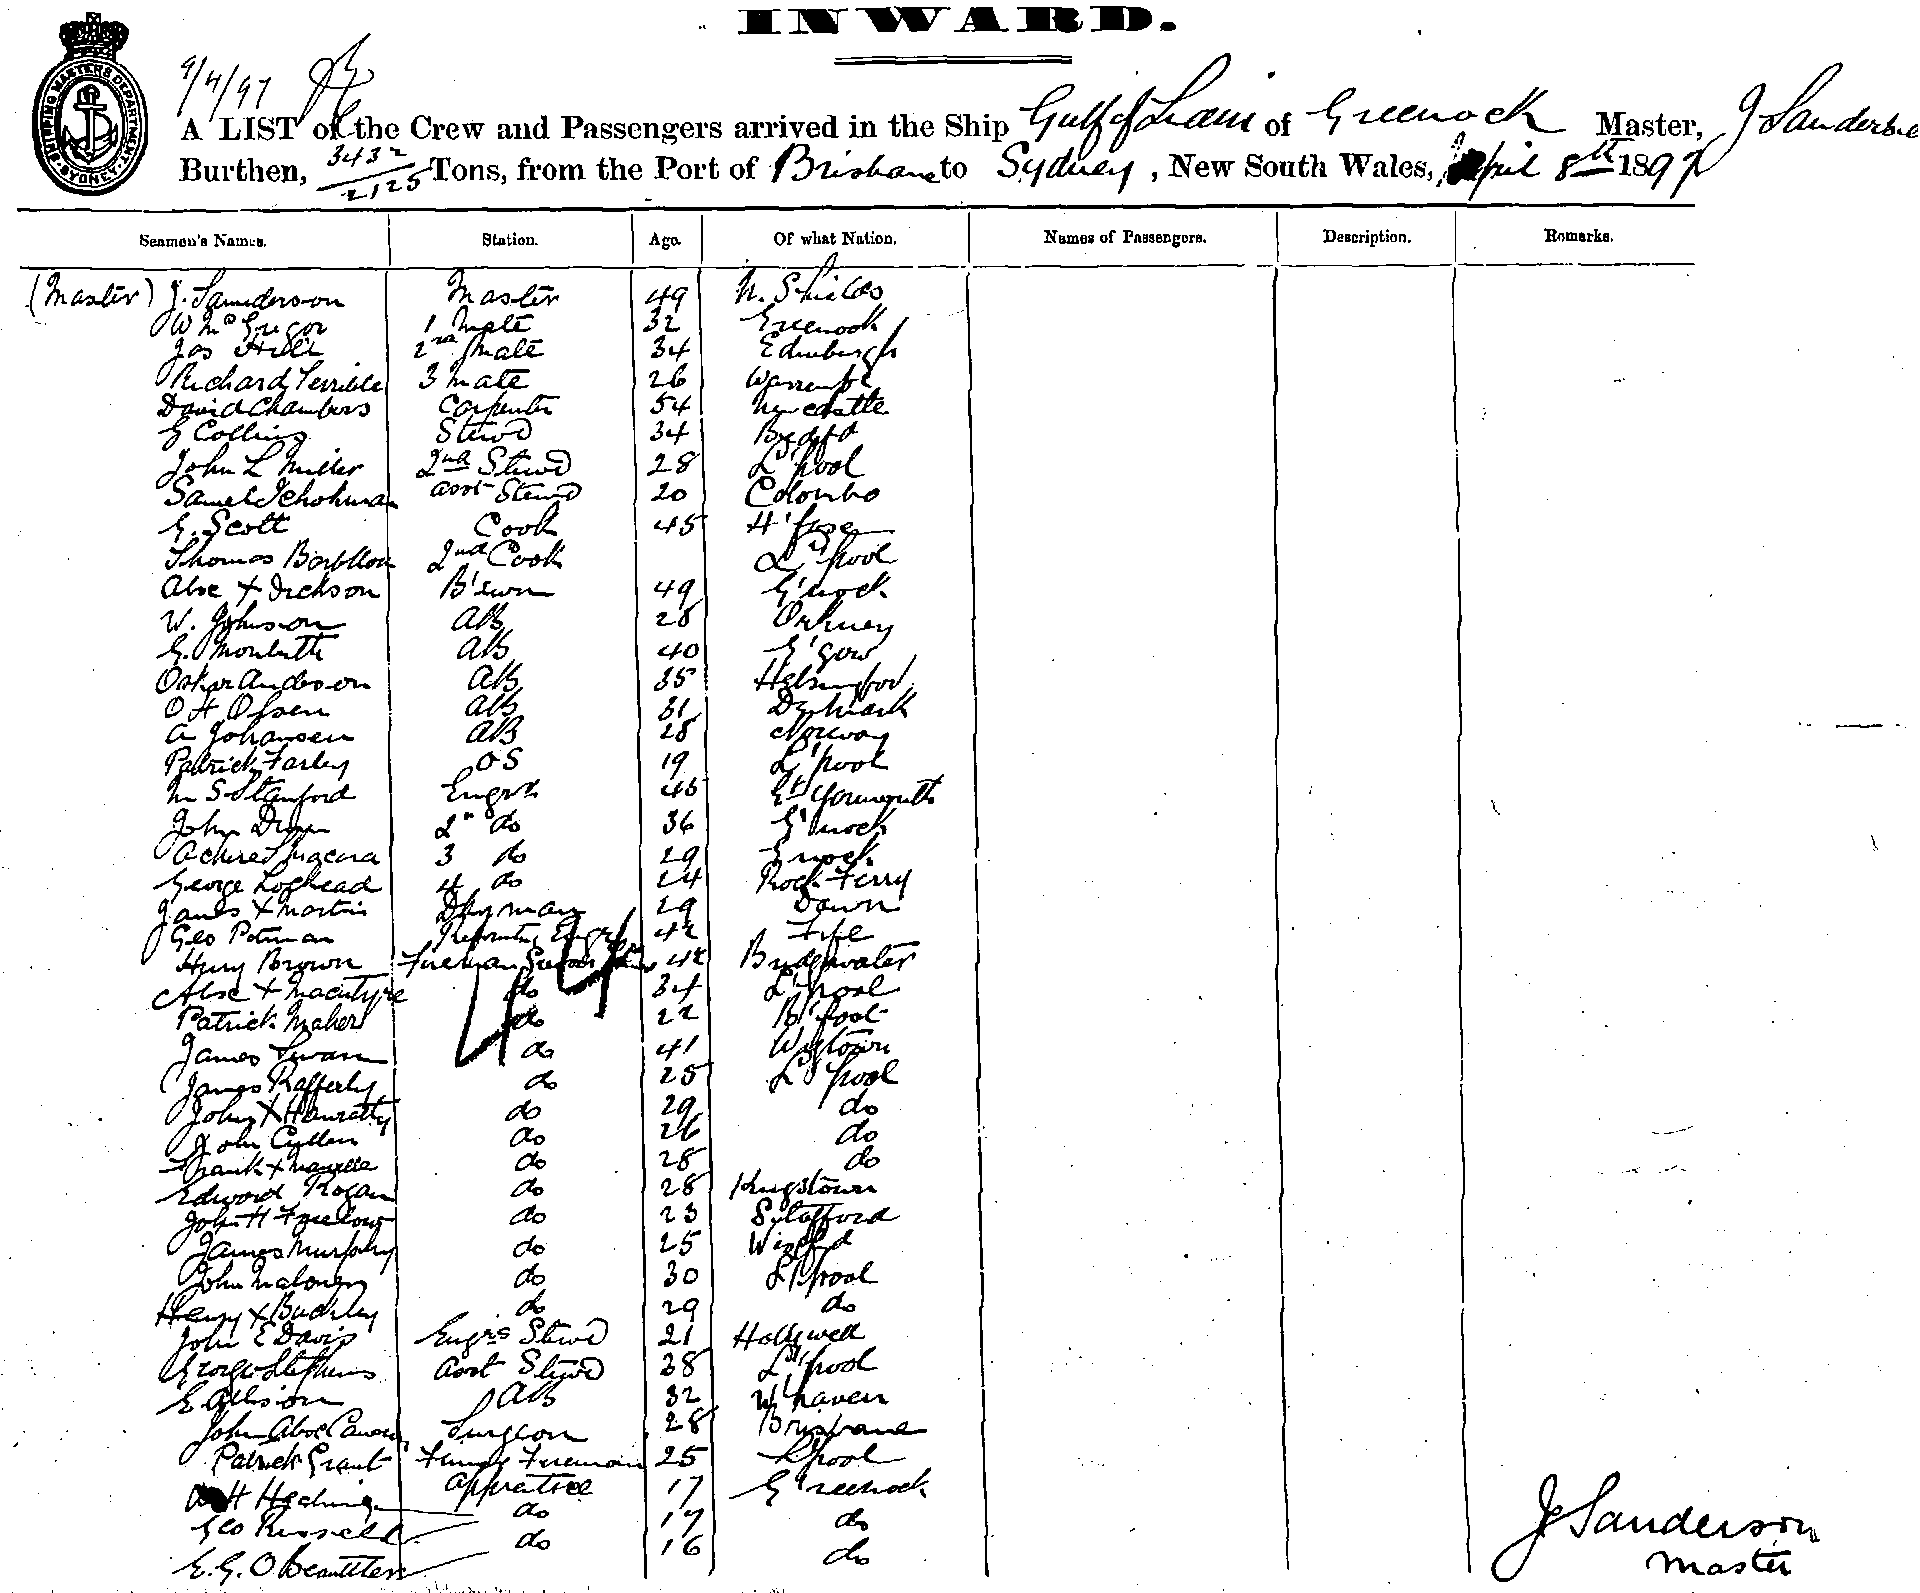 INWARD.
9/4/97
SHIPPING MASTER'S DEPARTMENT SYDNEY
A LIST of the Crew and Passengers arrived in the Ship Gulf of Siam of Greenock Master, J Sanderson
Burthen, 3432/2125 Tons, from the Port of Brisbane to Sydney, New South Wales, April 8th 1897
Seamen's Names. Station. Age. Of what Nation. Names of Passengers. Description. Remarks.
(Master) J. Sanderson Master 49 N. Shields
W McGregor 1 Mate 32 Greenock
Jas Hill 2nd Mate 34 Edinburgh
Richard Terrible 3 Mate 26
David Chambers Carpenter 54 Newcastle
G Collins Stewd 34
John L Miller 2nd Stewd 28 L'pool
Samuel Asst Stewd 20 Colombo
G. Scott Cook 45
Thomas 2nd Cook L'pool
Alxe x Dickson B'swn 49 G'nock
W. Johnson AB 28 Orkney
G. Monteith AB 40 G'gow
Oskar Anderson AB 35 Helsingfors
O H Olsen AB 31 Denmark
A Johansen AB 28 Norway
Patrick Farley OS 19 L'pool
M S Stanford Engr 45 Gt Yarmouth
John 2nd do 36 G'nock
3 do 29 G'nock
George Loghead 4 do 24 Rock Ferry
James x Martin Dkyman 29 Down
Geo Potman Engr 42 Fife
Henry Brown Fireman 42 Bridgwater
Alxe x Macintyre do 34 L'pool
Patrick Maher do 22
James Swann do 41 Wigtown
James Rafferty do 25 L'pool
John x Hanratty do 29 do
John Cullen do 26 do
Frank x do 28 do
Edward Rogan do 28 Kingstown
John H do 23 Stafford
James Murphy do 25 Wexford
John Maloney do 30 L'pool
Henry x Buckley do 29 do
John E Davis Engrs Stewd 21 Hollywell
George Stephens Asst Stewd 38 L'pool
E Allison AB 32 W'haven
John Alxe Surgeon 28 Brisbane
Patrick Grant Fireman 25 L'pool
H Apprentice 17 Greenock
Geo Russell do 17 do
E. G. do 16 do
J Sanderson
Master